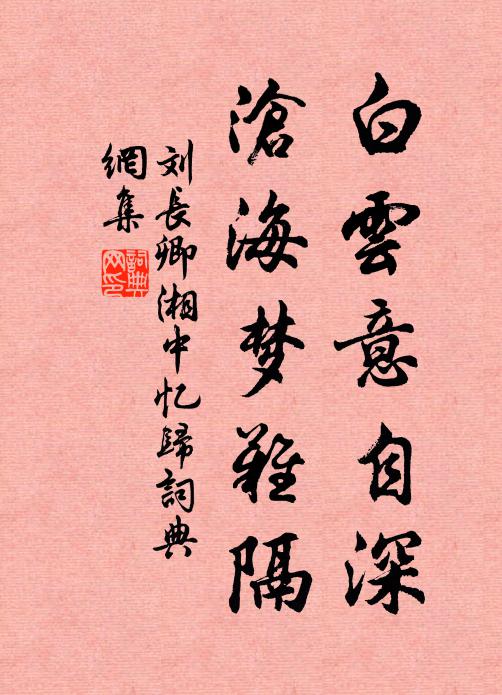 白雲意自深
滄海梦難隔
刘長卿湘中忆歸詞典
網集
詞典
网印